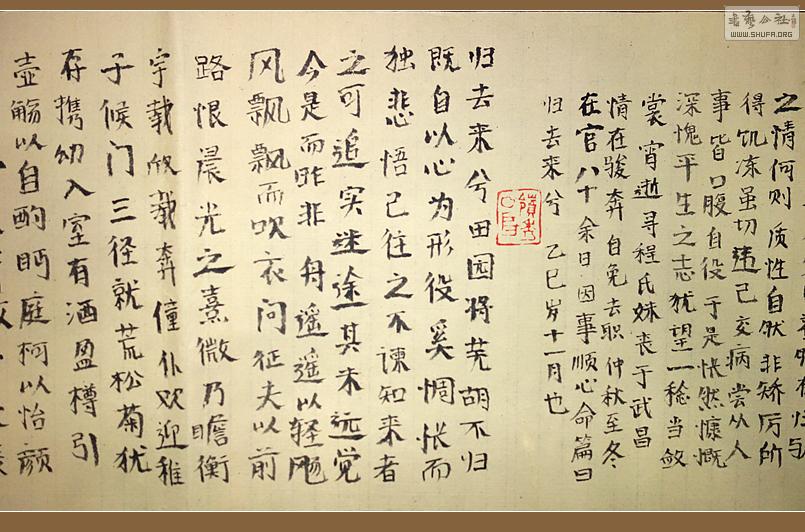 归与
之情何则质性自然非矫厉所
得饥冻虽切违己交病尝从人
事皆口腹自役于是怅然慷慨
深愧平生之志犹望一稔当敛
裳宵逝寻程氏妹丧于武昌
情在骏奔自免去职仲秋至冬
在官八十余日因事顺心命篇曰
归去来兮 乙巳岁十一月也
归去来兮田园将芜胡不归
既自以心为形役奚惆怅而
独悲悟已往之不谏知来者
之可追实迷途其未远觉
今是而昨非舟遥遥以轻飏
风飘飘而吹衣问征夫以前
路恨晨光之熹微乃瞻衡
宇载欣载奔僮仆欢迎稚
子候门三径就荒松菊犹
存携幼入室有酒盈樽引
壶觞以自酌眄庭柯以怡颜
书艺公社
WWW.SHUFA.ORG